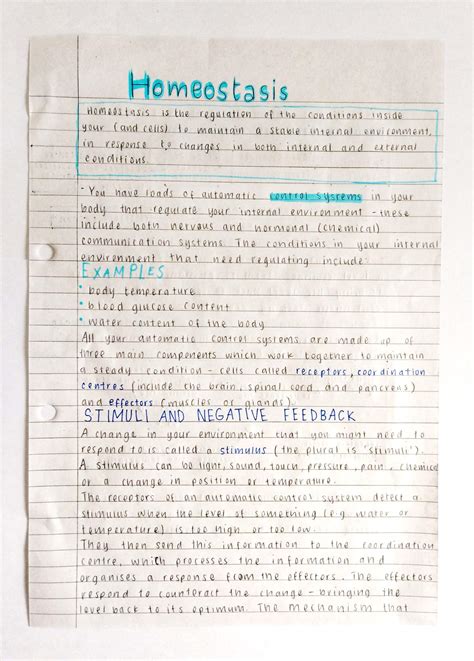 Homeostasis
Homeostasis is the regulation of the conditions inside
your (and cells) to maintain a stable internal environment,
in response to changes in both internal and external
conditions.
- You have loads of automatic control systems in your
body that regulate your internal environment - these
include both nervous and hormonal (chemical)
communication systems. The conditions in your internal
environment that need regulating include:
EXAMPLES
• body temperature
• blood glucose content
• water content of the body
All your automatic control systems are made up of
three main components which work together to maintain
a steady condition - cells called receptors, coordination
centres (include the brain, spinal cord, and pancreas)
and effectors (muscles or glands).
STIMULI AND NEGATIVE FEEDBACK
A change in your environment that you might need to
respond to is called a stimulus (the plural is 'stimuli').
A stimulus can be light, sound, touch, pressure, pain, chemical
or a change in position or temperature.
The receptors of an automatic control system detect a
stimulus when the level of something (e.g. water or
temperature) is too high or too low.
They then send this information to the coordination
centre, which processes the information and
organises a response from the effectors. The effectors
respond to counteract the change - bringing the
level back to its optimum. The mechanism that